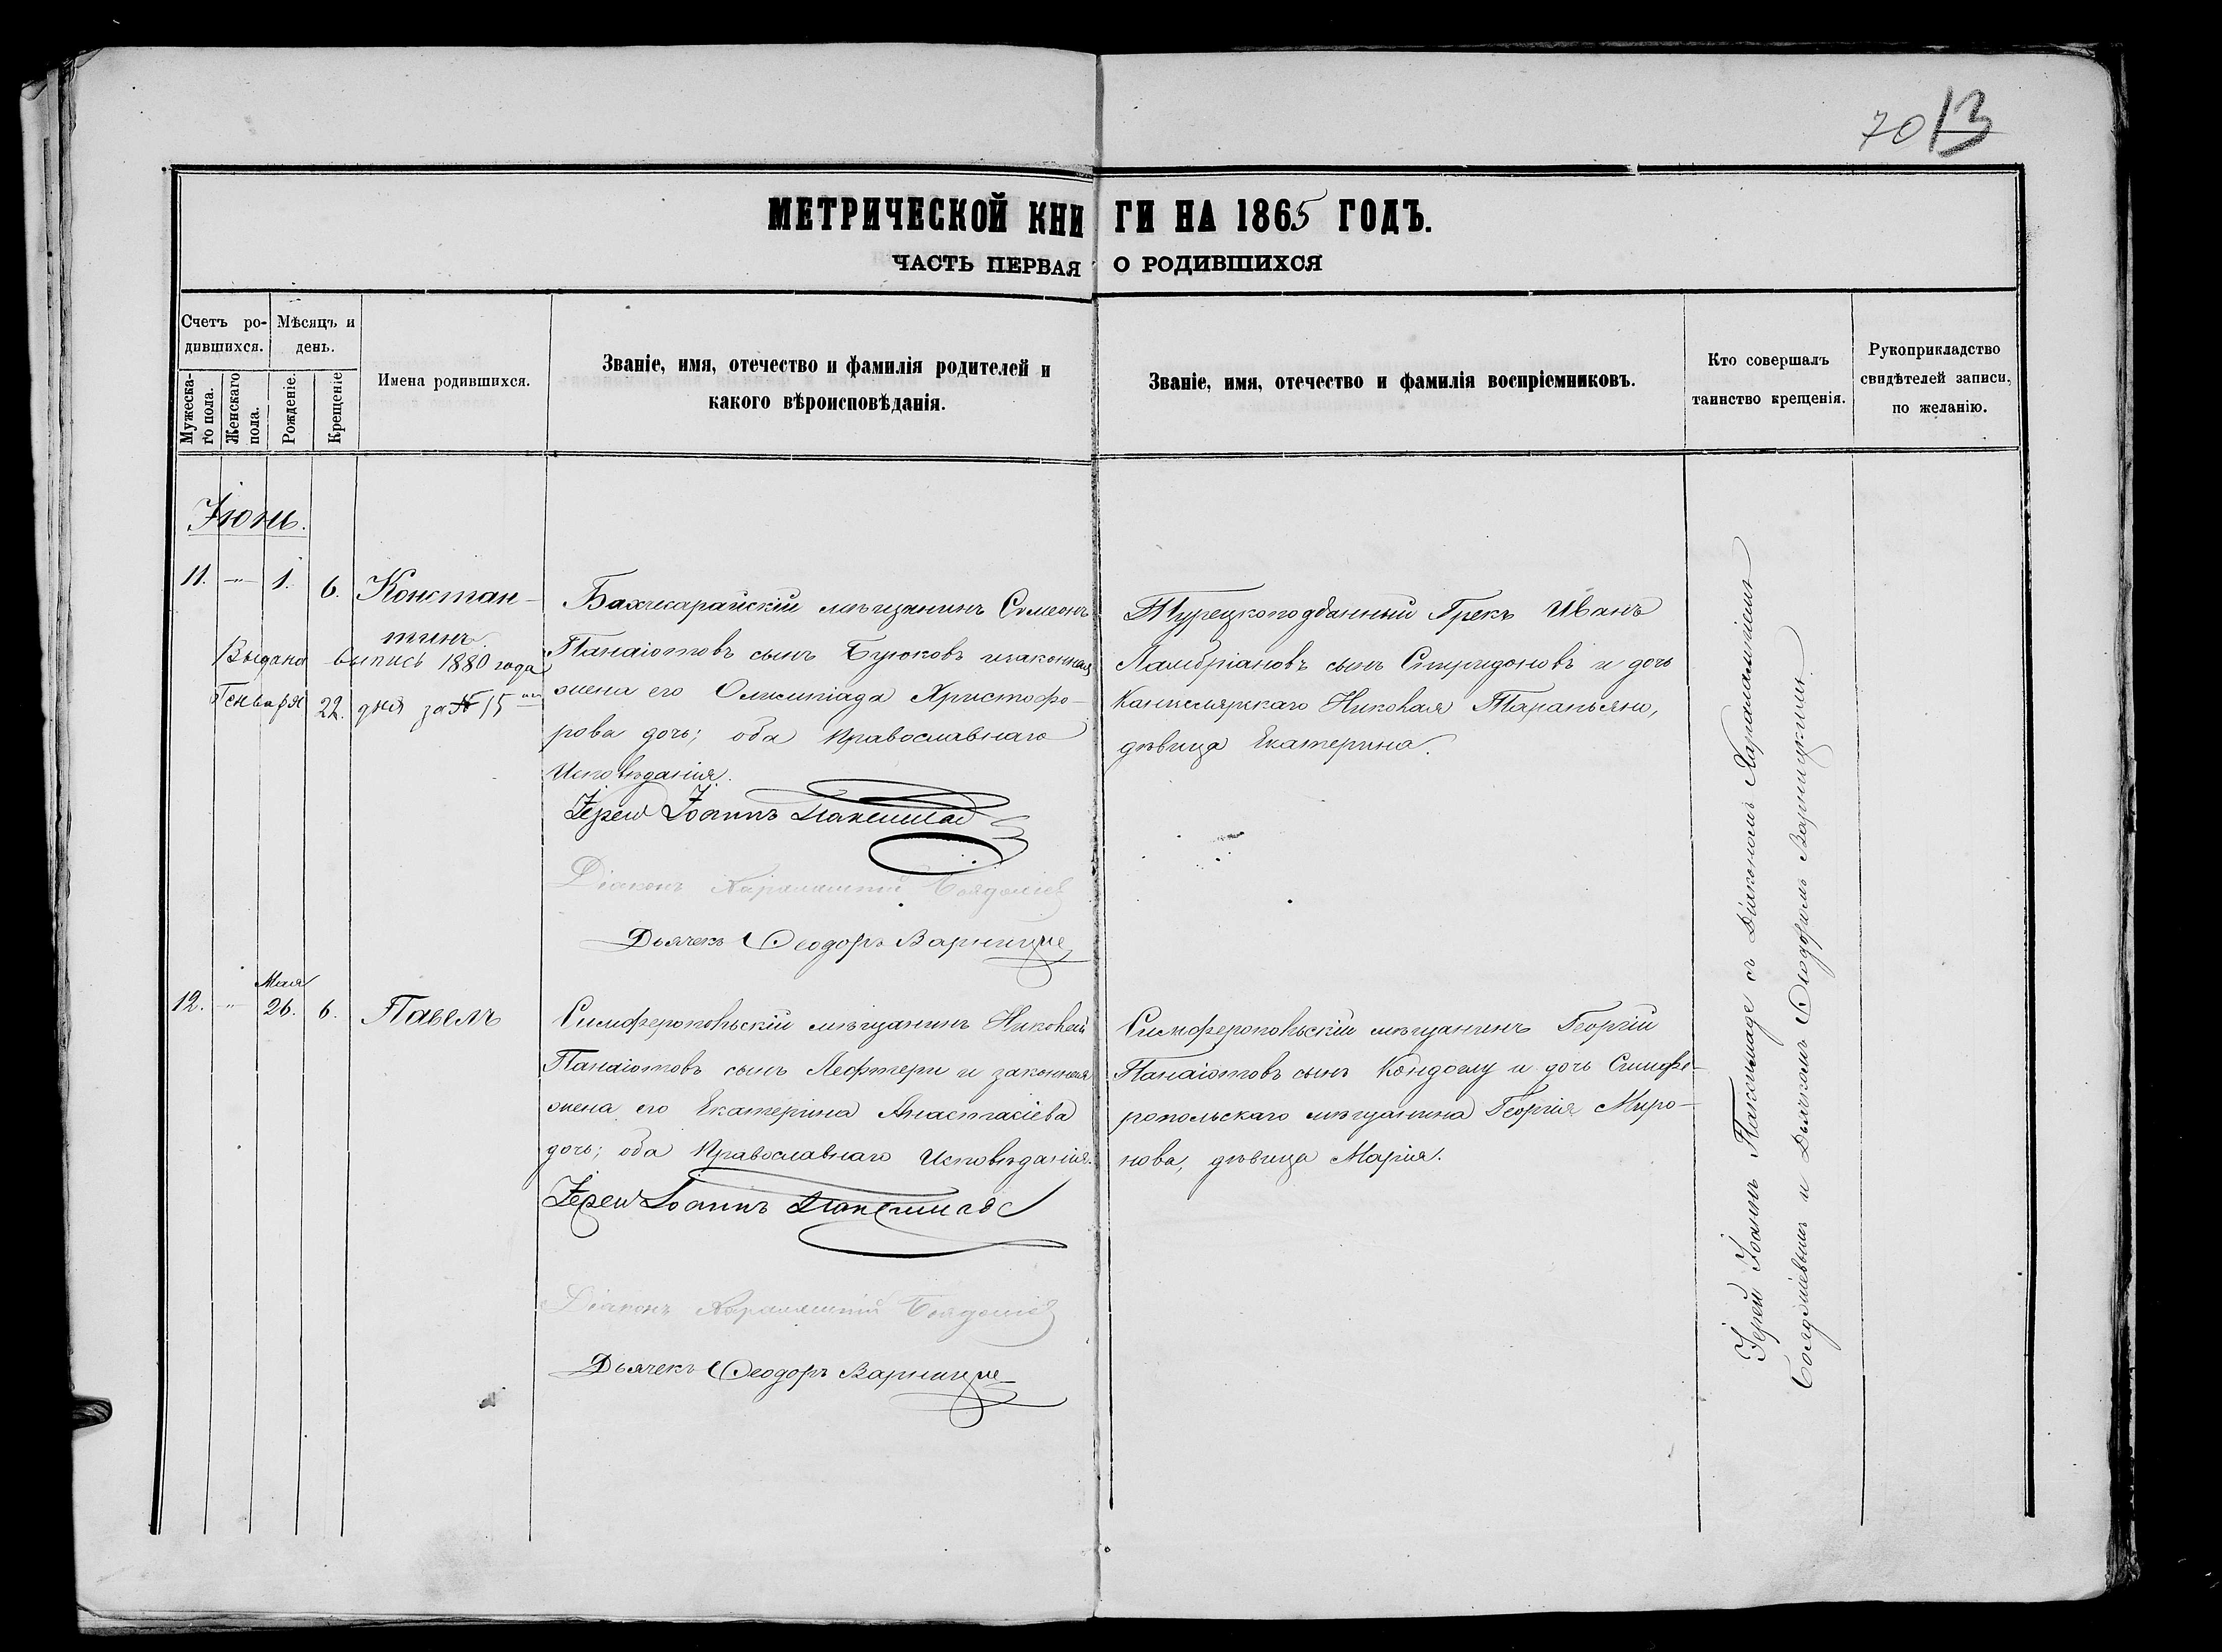 70 13
МЕТРИЧЕСКОЙ КНИГИ НА 1865 ГОДЪ.
ЧАСТЬ ПЕРВАЯ О РОДИВШИХСЯ
Счетъ ро-
дившихся.
Мѣсяцъ и
день.
Мужеска-
го пола.
Женскаго
пола.
Рожденіе.
Крещеніе
Имена родившихся.
Званіе, имя, отечество и фамилія родителей и
какого вѣроисповѣданія.
Званіе, имя, отечество и фамилія воспріемниковъ.
Кто совершалъ
таинство крещенія.
Рукоприкладство
свидѣтелей записи,
по желанію.
Іюнь.
11. -"- 1. 6. Констан-
тинъ.
Выдана выпись 1880 года
Генваря 22. дня за № 15
Бахчисарайскій мѣщанинъ Симеонъ
Панаіотовъ сынъ Буюковъ и законная
жена его Олимпіада Христофо-
рова дочь; оба Православнаго
Исповѣданія.
Іерей Іоаннъ Пакимад
Діаконъ Харалампій
Дьячекъ Ѳеодоръ Варницкіе
Турецкоподданный Грекъ Иванъ
Ламбріановъ сынъ Спиридоновъ и дочь
Канцелярскаго Николая
дѣвица Екатерина.
Мая
12. " 26. 6. Павелъ
Симферопольскій мѣщанинъ Николай
Панаіотовъ сынъ Лефтери и законная
жена его Екатерина Анастасіева
дочь; оба Православнаго Исповѣданія.
Іерей Іоаннъ Пакимаде
Діаконъ Харалампій
Дьячекъ Ѳеодоръ Варницкіе
Симферопольскій мѣщанинъ Георгій
Панаіотовъ сынъ Кондоглу и дочь Симфе-
ропольскаго мѣщанина Георгія Миро-
нова, дѣвица Марія.
Іерей Іоаннъ Пакимаде съ Діакономъ Харалампіемъ
и Дьячкомъ Ѳеодоромъ Варницкимъ.